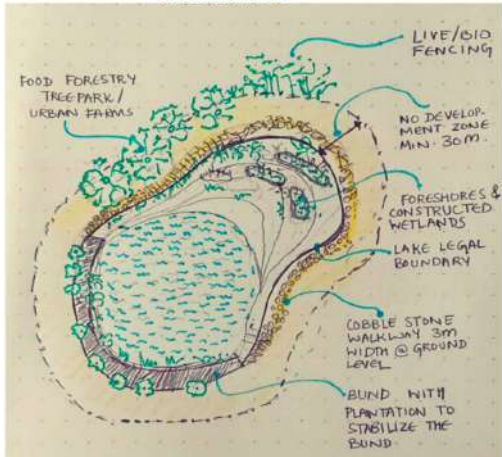 LIVE/BIO
FENCING
FOOD FORESTRY
TREEPARK/
URBAN FARMS
NO DEVELOP-
MENT ZONE
MIN. 30M.
FORESHORES &
CONSTRUCTED
WETLANDS
LAKE LEGAL
BOUNDARY
COBBLE STONE
WALKWAY 3m
WIDTH @ GROUND
LEVEL
BUND WITH
PLANTATION TO
STABILIZE THE
BUND